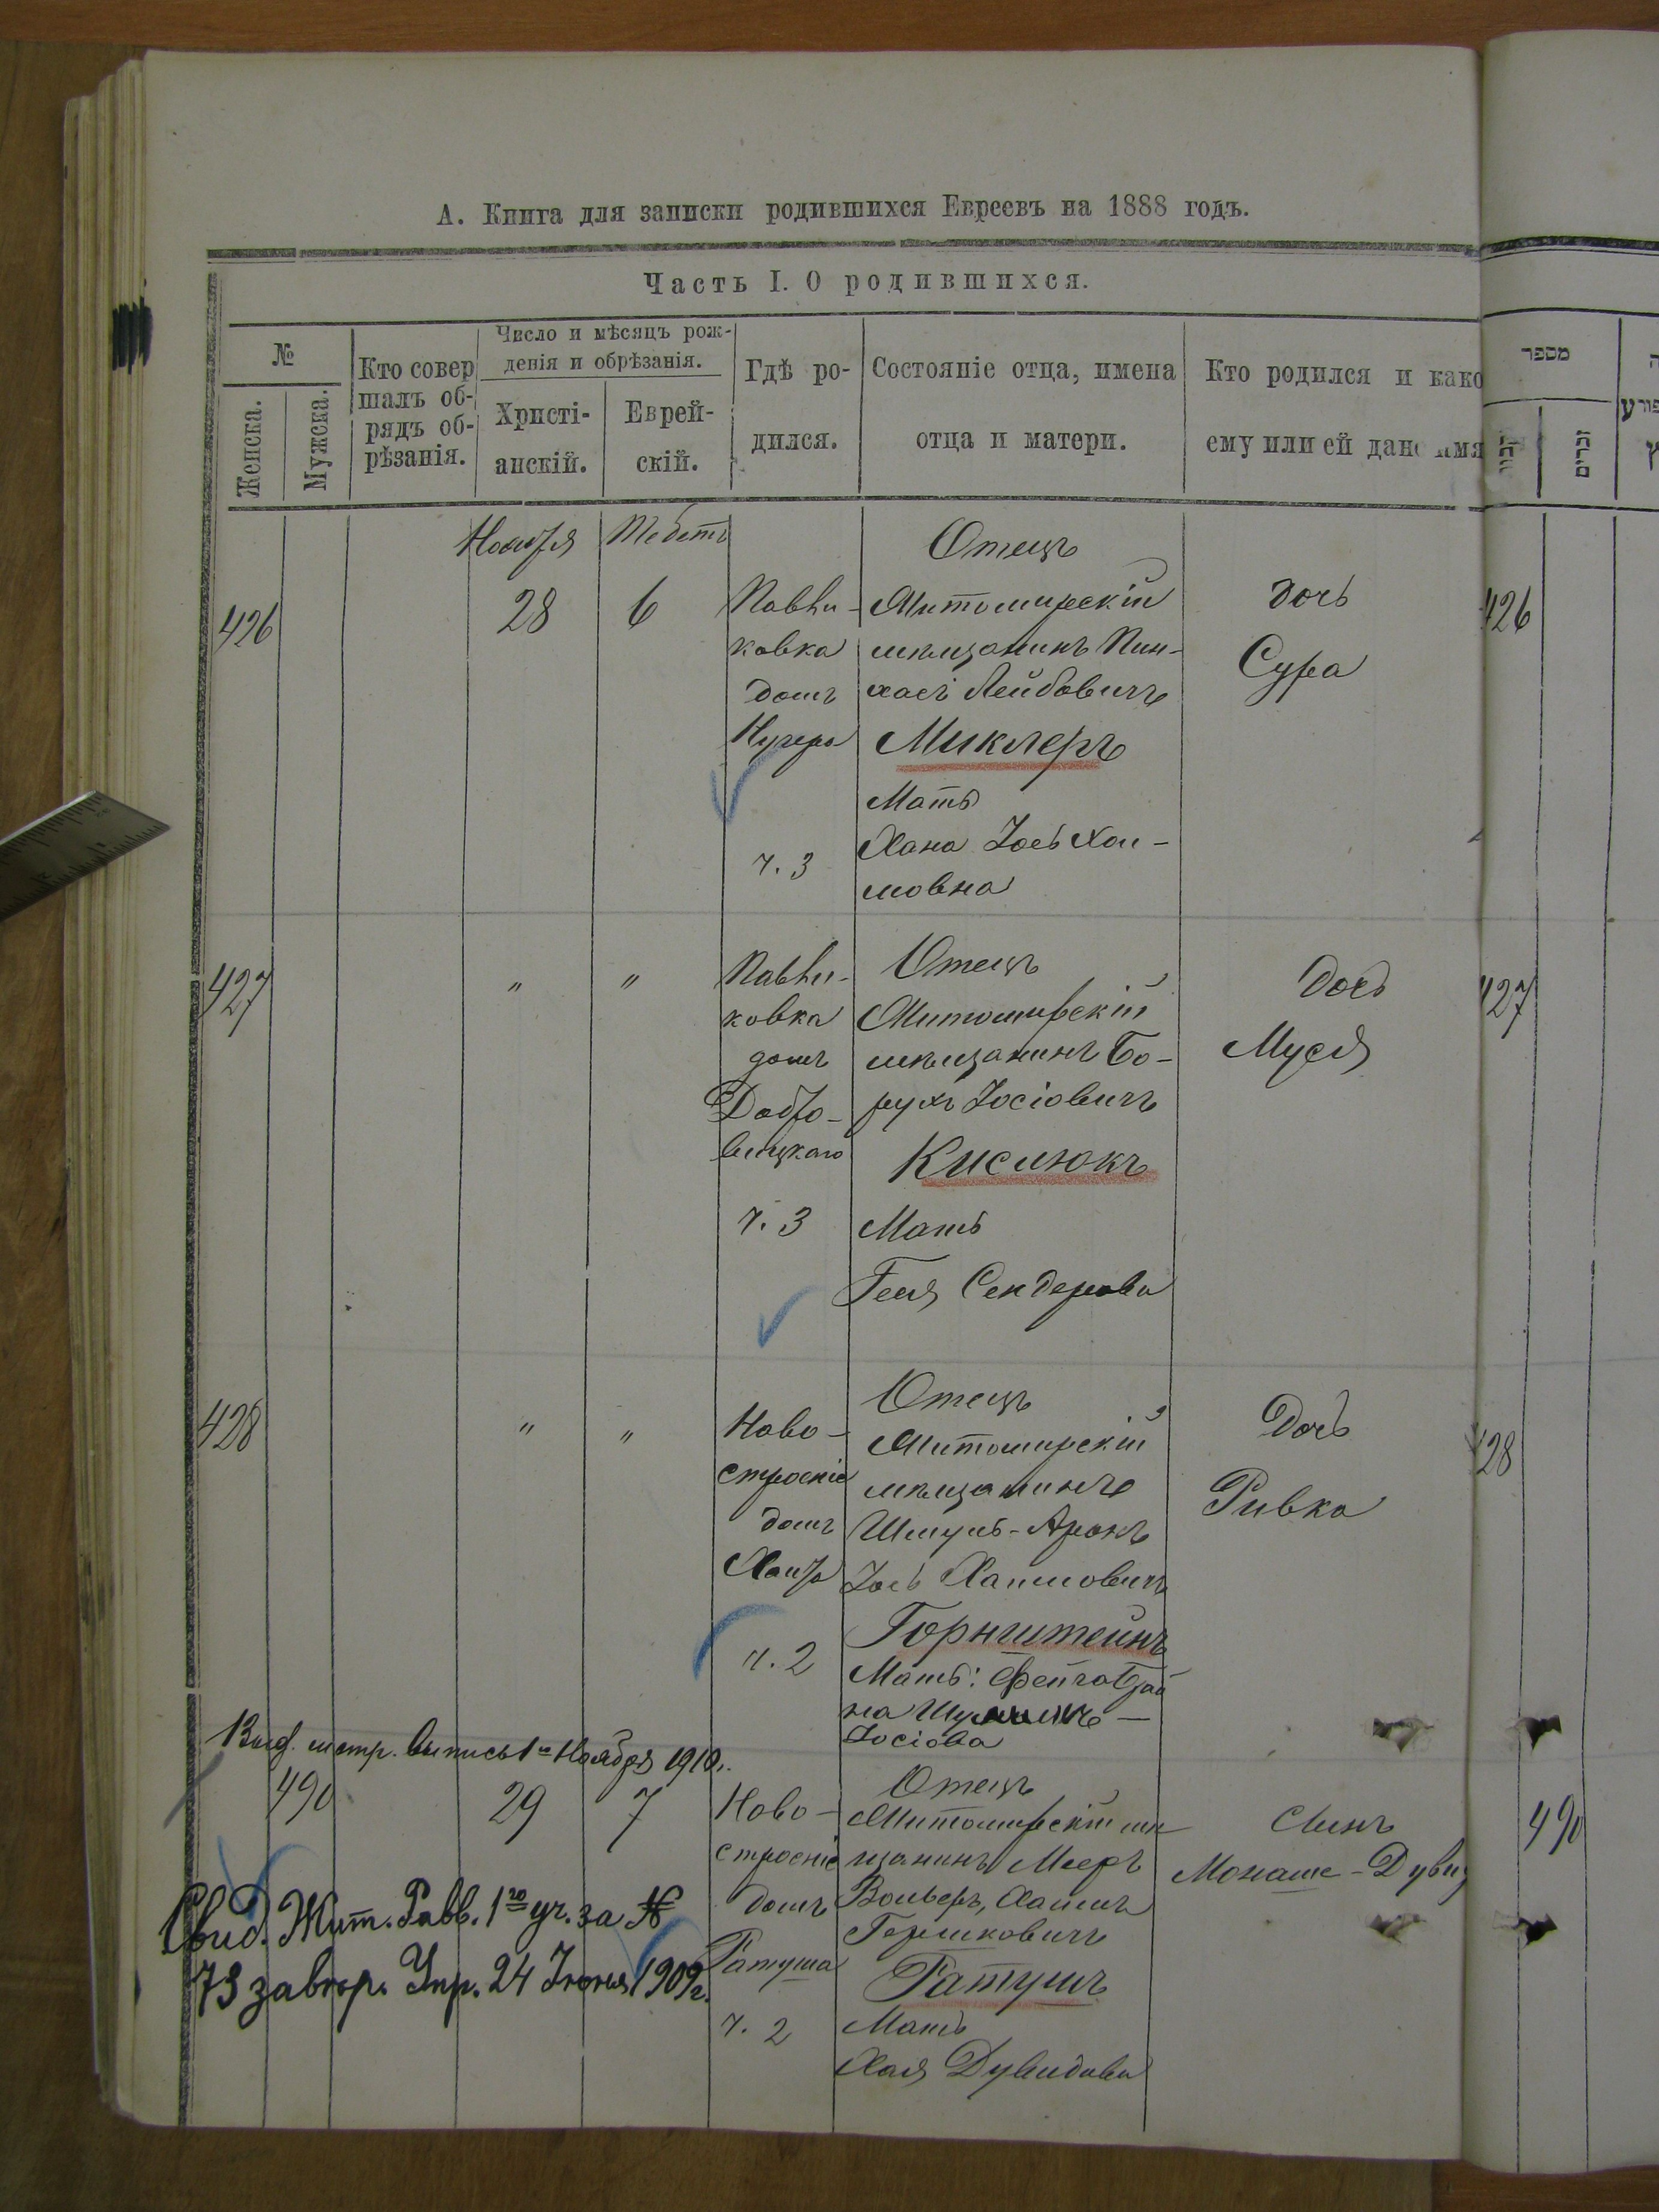 А. Книга для записки родившихся Евреевъ на 1888 годъ.
Часть I. О родившихся.
№
Женска.
Мужска.
Кто совер
шалъ об-
рядъ об-
рѣзанія.
Число и мѣсяцъ рож-
денія и обрѣзанія.
Христі-
анскій.
Еврей-
скій.
Гдѣ ро-
дился.
Состояніе отца, имена
отца и матери.
Кто родился и како
ему или ей дано имя
מספר
זכרים
426
Ноября
28
Тебетъ
6
Павли-
ковка
домъ
ч. 3
Отецъ
Житомирскій
мѣщанинъ Пин-
хасъ Лейбовичъ
Миклеръ
Мать
Хана Іось Хаи-
мовна
дочь
Сура
426
427
"
"
Павли-
ковка
домъ
Добро-
вицкаго
ч. 3
Отецъ
Житомирскій
мѣщанинъ Бо-
рухъ Іосіовичъ
Кислюкъ
Мать
Геня Сендерова
дочь
Муся
427
428
"
"
Ново-
строеніе
домъ
ч. 2
Отецъ
Житомирскій
мѣщанинъ
Шмуль-Аронъ
Іось Хаимовичъ
Горнштейнъ
Мать: Фейга
Іосіова
Дочь
Ривка
428
Выд. метр. выпись 1го Ноября 1910г.
490
29
7
Ново-
строеніе
домъ
Ратуша
ч. 2
Отецъ
Житомирскій мѣ
щанинъ Мееръ
Вольверъ, Хаимъ
Гершковичъ
Ратушъ
Мать
Хая Дувидова
Сынъ
Монаше-Дувид
490
Свид. Жит. Равв. 1го уч. за №
73 завѣр. Упр. 24 Іюня 1909г.